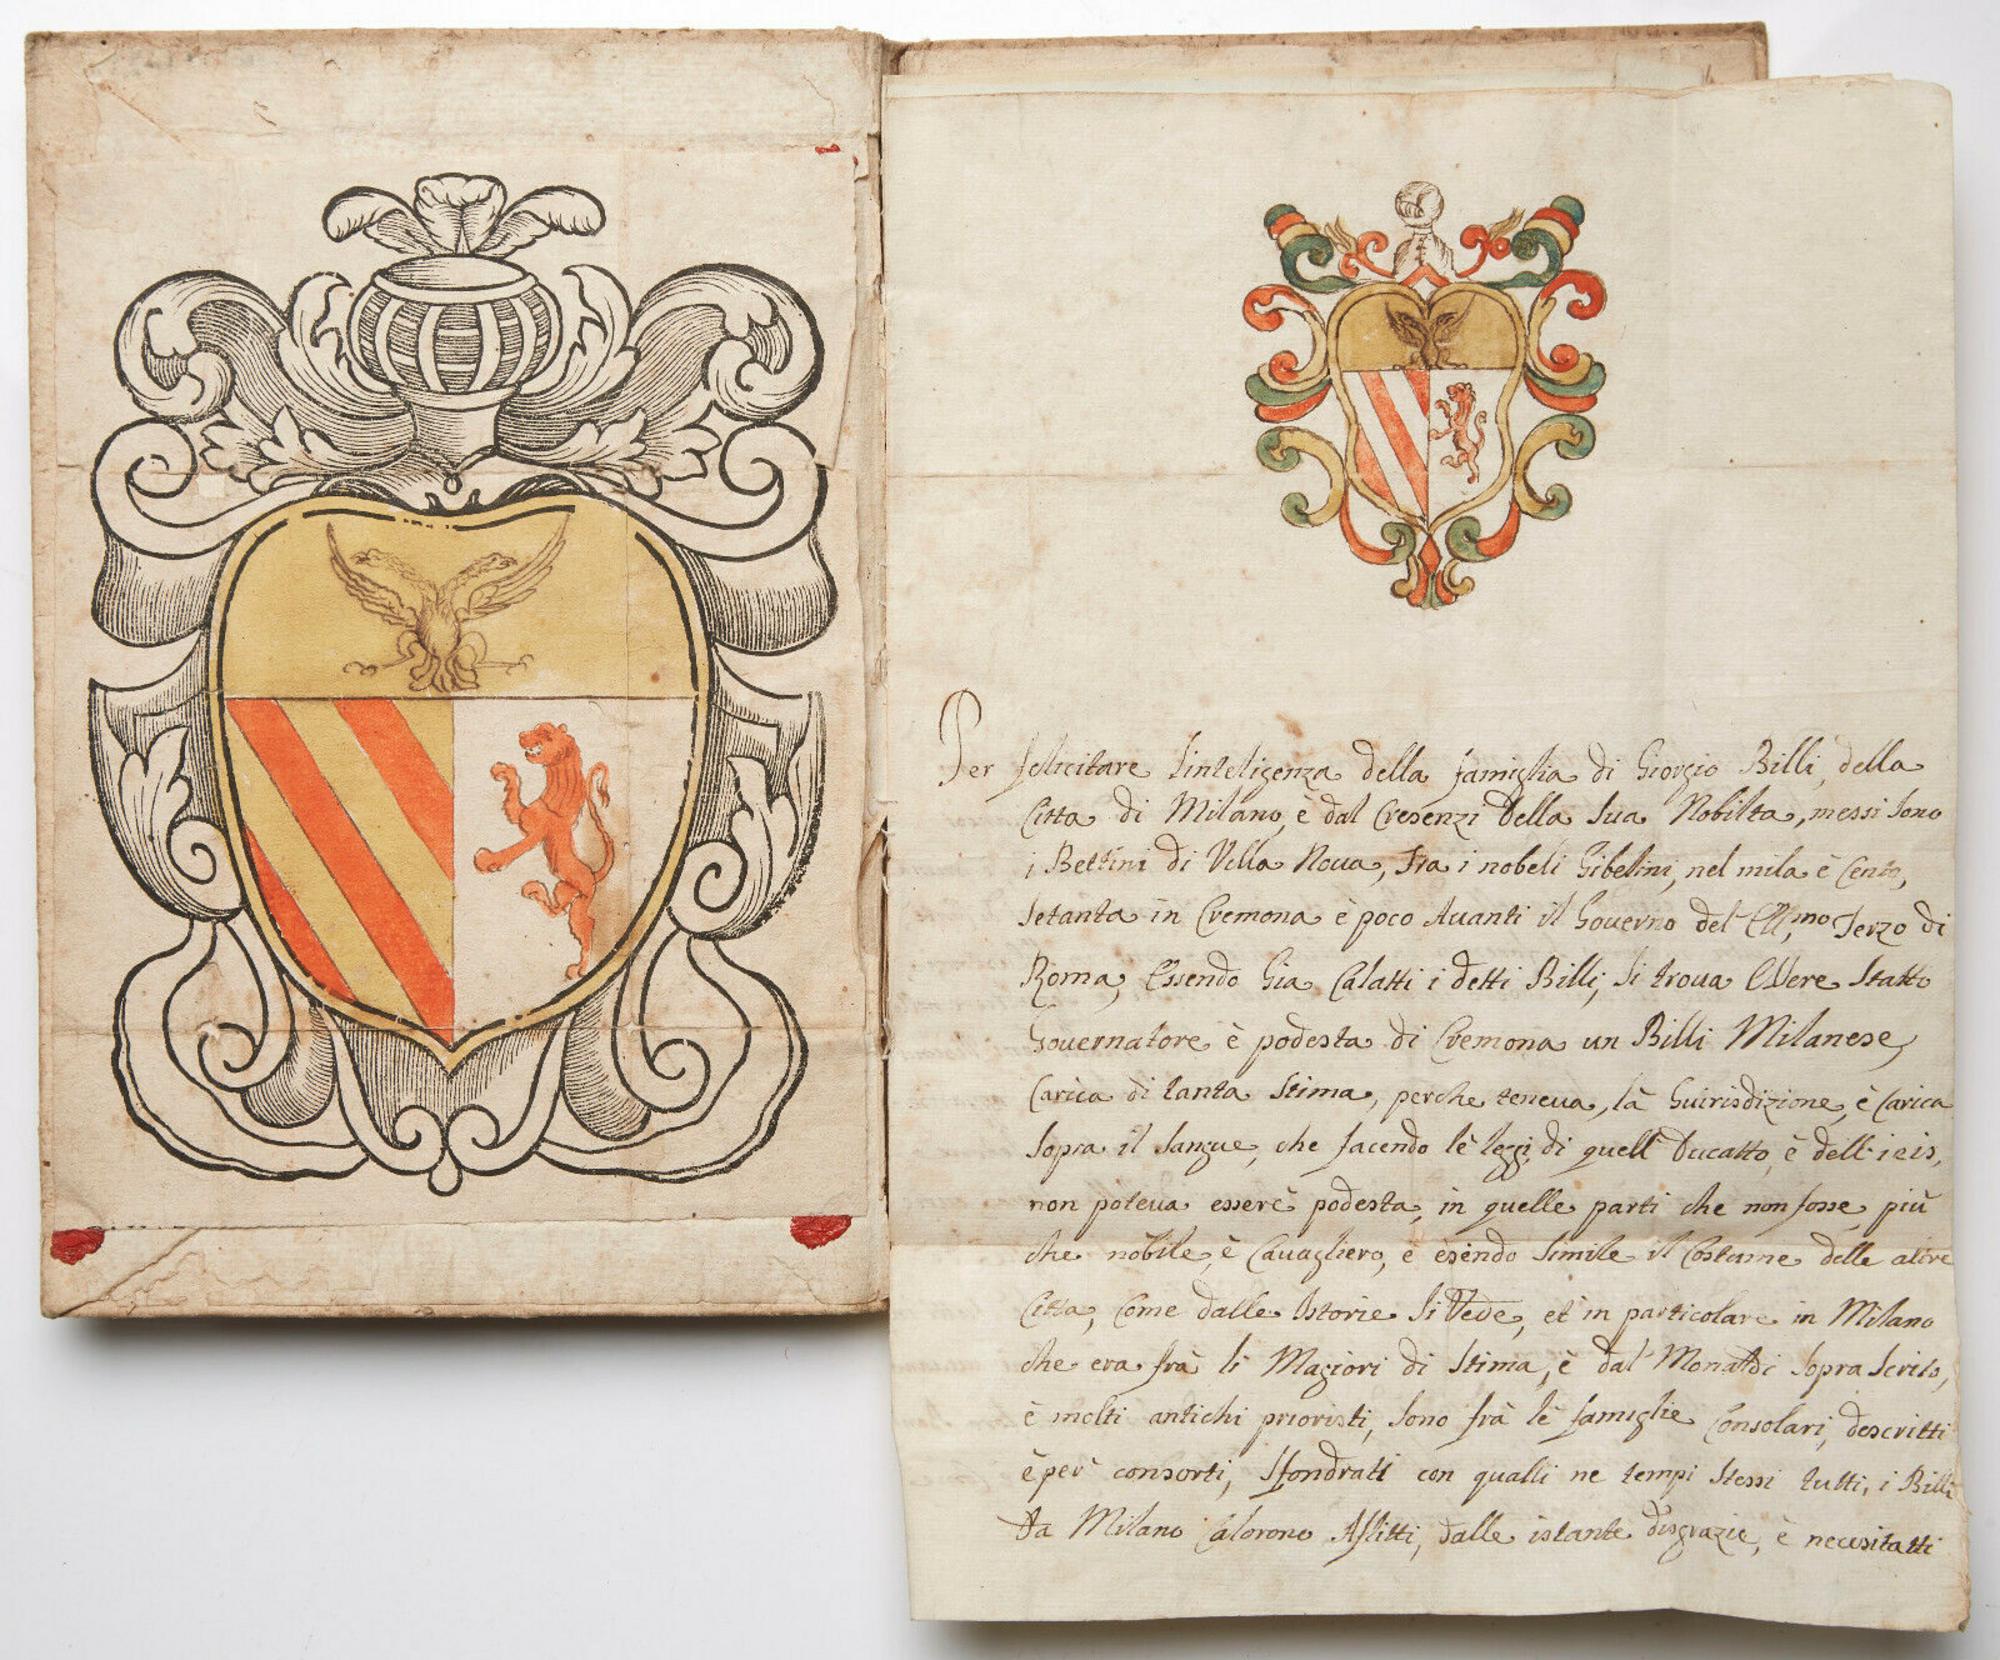 Per felicitare l'inteligenza della famiglia di Giorgio Billi, della
Citta di Milano, è dal Cresenzi della Sua Nobilta, messi sono
i Bettini di Villa Noua, fra i nobeli Gibelini, nel mila è Cento,
setanta in Cremona è poco Auanti il Gouerno del Terzo di
Roma, Essendo Gia Calatti i detti Billi, si troua Essere Statto
Gouernatore è podesta di Cremona un Billi Milanese,
Carica di tanta stima, perche teneua, là Guirisdizione, è Carica
sopra il sangue, che facendo lè leggi di quell Ducatto, è dell
non poteua esserè podesta, in quelle parti che non fosse, più
che nobile, è Cauagliero, e esendo simile il Costume delle altre
Citta, Come dalle Istorie si Vede, et in particolare in Milano
che era frà li Magiori di stima, è dal Monaldi sopra scrito,
è molti antichi prioristi, sono frà lè famiglie Consolari, descritti
è per consorti, Sfondrati con qualli ne tempi stessi tutti, i Billi
Da Milano Calorono Aflitti, dalle istante disgrazie, è necesitatti